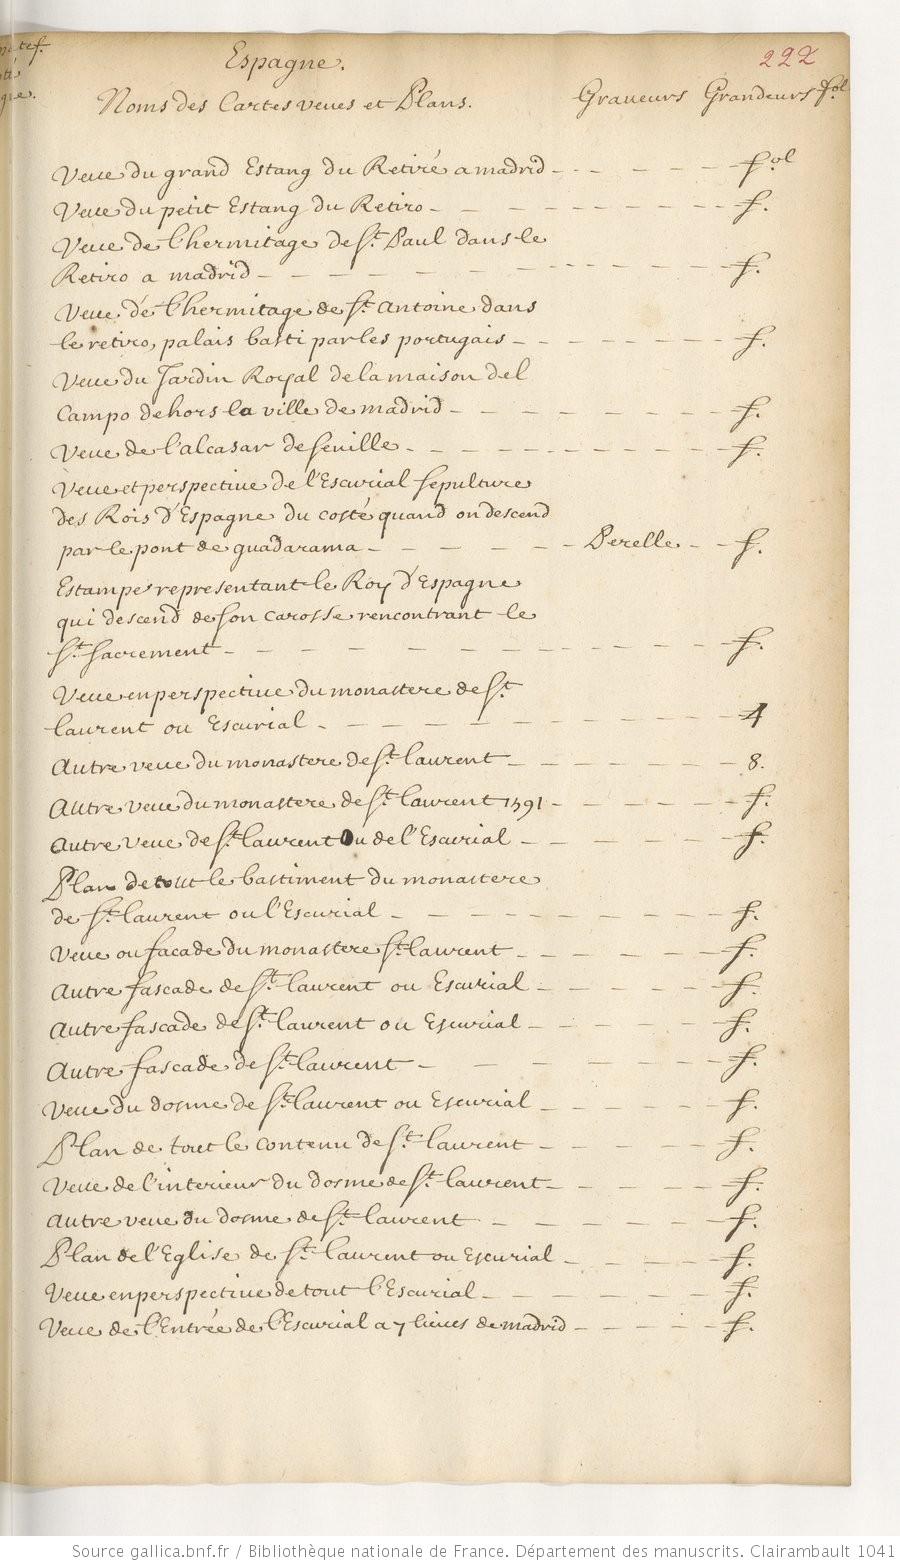 Espagne.
222
Noms des Cartes veues et Plans. Graveurs Grandeurs fol
Veue du grand Estang du Retiré a madrid - - - - - - fol
Veue du petit Estang du Retiro - - - - - - f.
Veue de l'hermitage de St. Paul dans le
Retiro a madrid - - - - - - f.
Veue de l'hermitage de St. Antoine dans
le retiro, palais basti par les portugais - - - - - - f.
Veue du Jardin Royal de la maison del
Campo dehors la ville de madrid - - - - - - f.
Veue de l'alcasar de seuille - - - - - - f.
Veue et perspective de l'Escurial sepulture
des Rois d'Espagne du costé quand on descend
par le pont de guadarama - - - - - - Perelle - - f.
Estampe representant le Roy d'Espagne
qui descend de son carosse rencontrant le
St. sacrement - - - - - - f.
Veue en perspective du monastere de St.
laurent ou Escurial - - - - - - 4
Autre veue du monastere de St. laurent - - - - - - 8.
Autre veue du monastere de St. laurent 1591 - - - - - f.
Autre veue de St. laurent ou de l'Escurial - - - - - f.
Plan de tout le bastiment du monastere
de St. laurent ou l'Escurial - - - - - - f.
Veue ou facade du monastere St. laurent - - - - - f.
Autre fascade de St. laurent ou Escurial - - - - - f.
Autre fascade de St. laurent ou Escurial - - - - - f.
Autre fascade de St. laurent - - - - - - f.
Veue du dosme de St. laurent ou Escurial - - - - - f.
Plan de tout le contenu de St. laurent - - - - - f.
Veue de l'interieur du dosme de St. laurent - - - - - f.
Autre veue du dosme de St. laurent - - - - - f.
Plan de l'Eglise de St. laurent ou Escurial - - - - - f.
Veue en perspective de tout l'Escurial - - - - - - f.
Veue de l'Entrée de l'Escurial a 7 lieues de madrid - - - - - f.
Source gallica.bnf.fr / Bibliothèque nationale de France. Département des manuscrits. Clairambault 1041